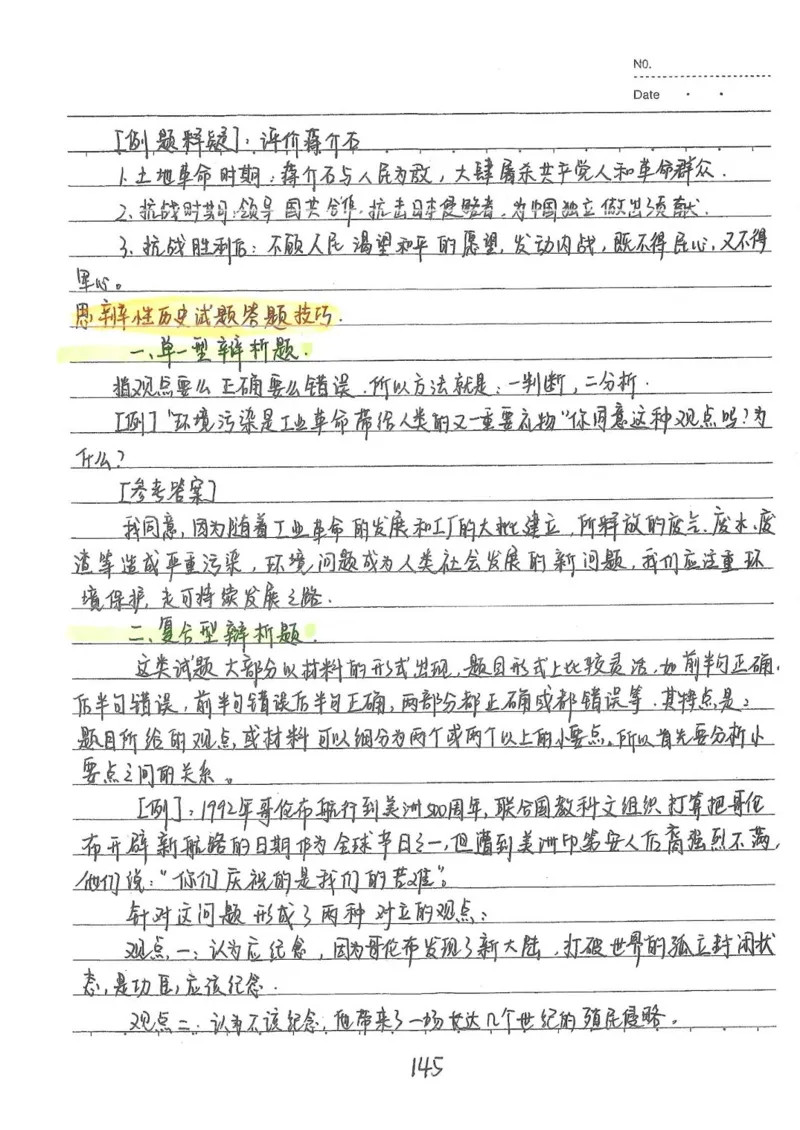 NO.
Date
[例题释疑]：评价蒋介石
1.土地革命时期：蒋介石与人民为敌，大肆屠杀共产党人和革命群众.
2.抗战时期:领导国共合作.抗击日本侵略者,为中国独立做出贡献.
3.抗战胜利后：不顾人民渴望和平的愿望,发动内战，既不得民心，又不得
军心。
思辨性历史试题答题技巧.
一、单一型辨析题.
指观点要么正确要么错误.所以方法就是：一判断，二分析.
[例]"环境污染是工业革命带给人类的又一重要礼物"你同意这种观点吗?为
什么?
[参考答案]
我同意，因为随着工业革命的发展和工厂的大批建立，所释放的废气、废水、废
渣等造成严重污染，环境问题成为人类社会发展的新问题，我们应注重环
境保护，走可持续发展之路.
二、复合型辨析题.
这类试题大部分以材料的形式出现，题目形式上比较灵活，如前半句正确，
后半句错误，前半句错误后半句正确，两部分都正确或都错误等.其特点是：
题目所给的观点，或材料可以细分为两个或两个以上的小要点。所以首先要分析小
要点之间的关系。
[例]：1992年哥伦布航行到美洲500周年，联合国教科文组织打算把哥伦
布开辟新航路的日期作为全球节日之一，但遭到美洲印第安人后裔强烈不满，
他们说："你们庆祝的是我们的苦难"。
针对这问题形成了两种对立的观点：
观点一：认为应纪念，因为哥伦布发现了新大陆，打破世界的孤立封闭状
态，是功臣，应该纪念.
观点二：认为不该纪念，他带来了一场长达几个世纪的殖民侵略。
145